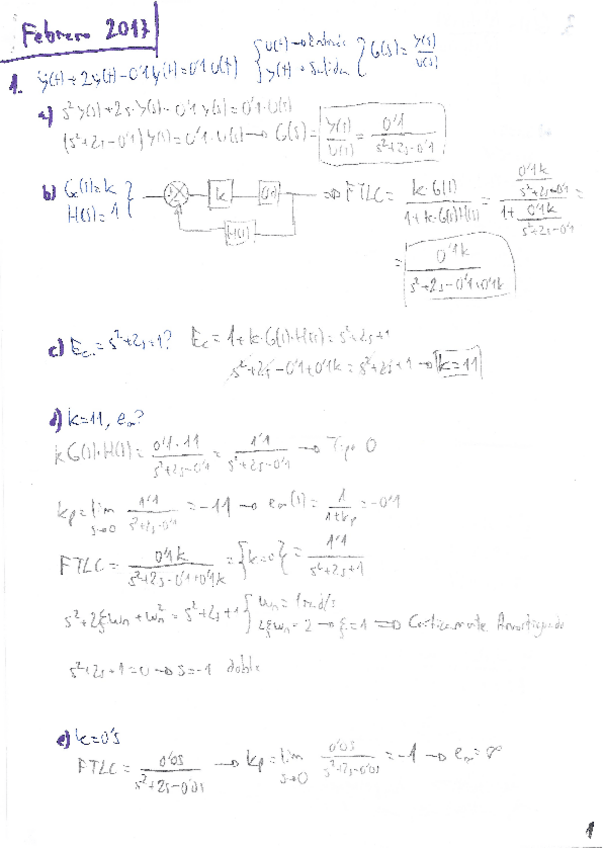 Febrero 2017
1. ÿ(t) + 2ẏ(t) - 0'1y(t) = 0'1 u(t) { u(t) → Entrada } G(s) = Y(s)/U(s)
y(t) → Salida
a) s²Y(s) + 2s·Y(s) - 0'1 Y(s) = 0'1·U(s)
(s²+2s-0'1) Y(s) = 0'1·U(s) → G(s) = Y(s)/U(s) = 0'1/(s²+2s-0'1)
b) G(s) = k
H(s) = 1
k
G(s)
H(s)
⇒ FTLC = k·G(s)/(1+k·G(s)H(s)) = (0'1k/(s²+2s-0'1))/(1+0'1k/(s²+2s-0'1)) =
= 0'1k/(s²+2s-0'1+0'1k)
c) Ec = s²+2s+1? Ec = 1+k·G(s)·H(s) = s²+2s+1
s²+2s-0'1+0'1k = s²+2s+1 → k=11
d) k=11, e∞?
kG(s)·H(s) = 0'1·11/(s²+2s-0'1) = 1'1/(s²+2s-0'1) → Tipo 0
kp = lim s→0 1'1/(s²+2s-0'1) = -11 → e∞(s) = 1/(1+kp) = -0'1
FTLC = 0'1k/(s²+2s-0'1+0'1k) = 1'1/(s²+2s+1)
s²+2ξωn+ωn² = s²+2s+1 { ωn = 1rad/s
2ξωn = 2 → ξ=1 ⇒ Críticamente Amortiguado
s²+2s+1=0 → s=-1 doble
e) k=0'5
FTLC = 0'05/(s²+2s-0'05) → kp = lim s→0 0'05/(s²+2s-0'05) = -1 → e∞ = ∞
1